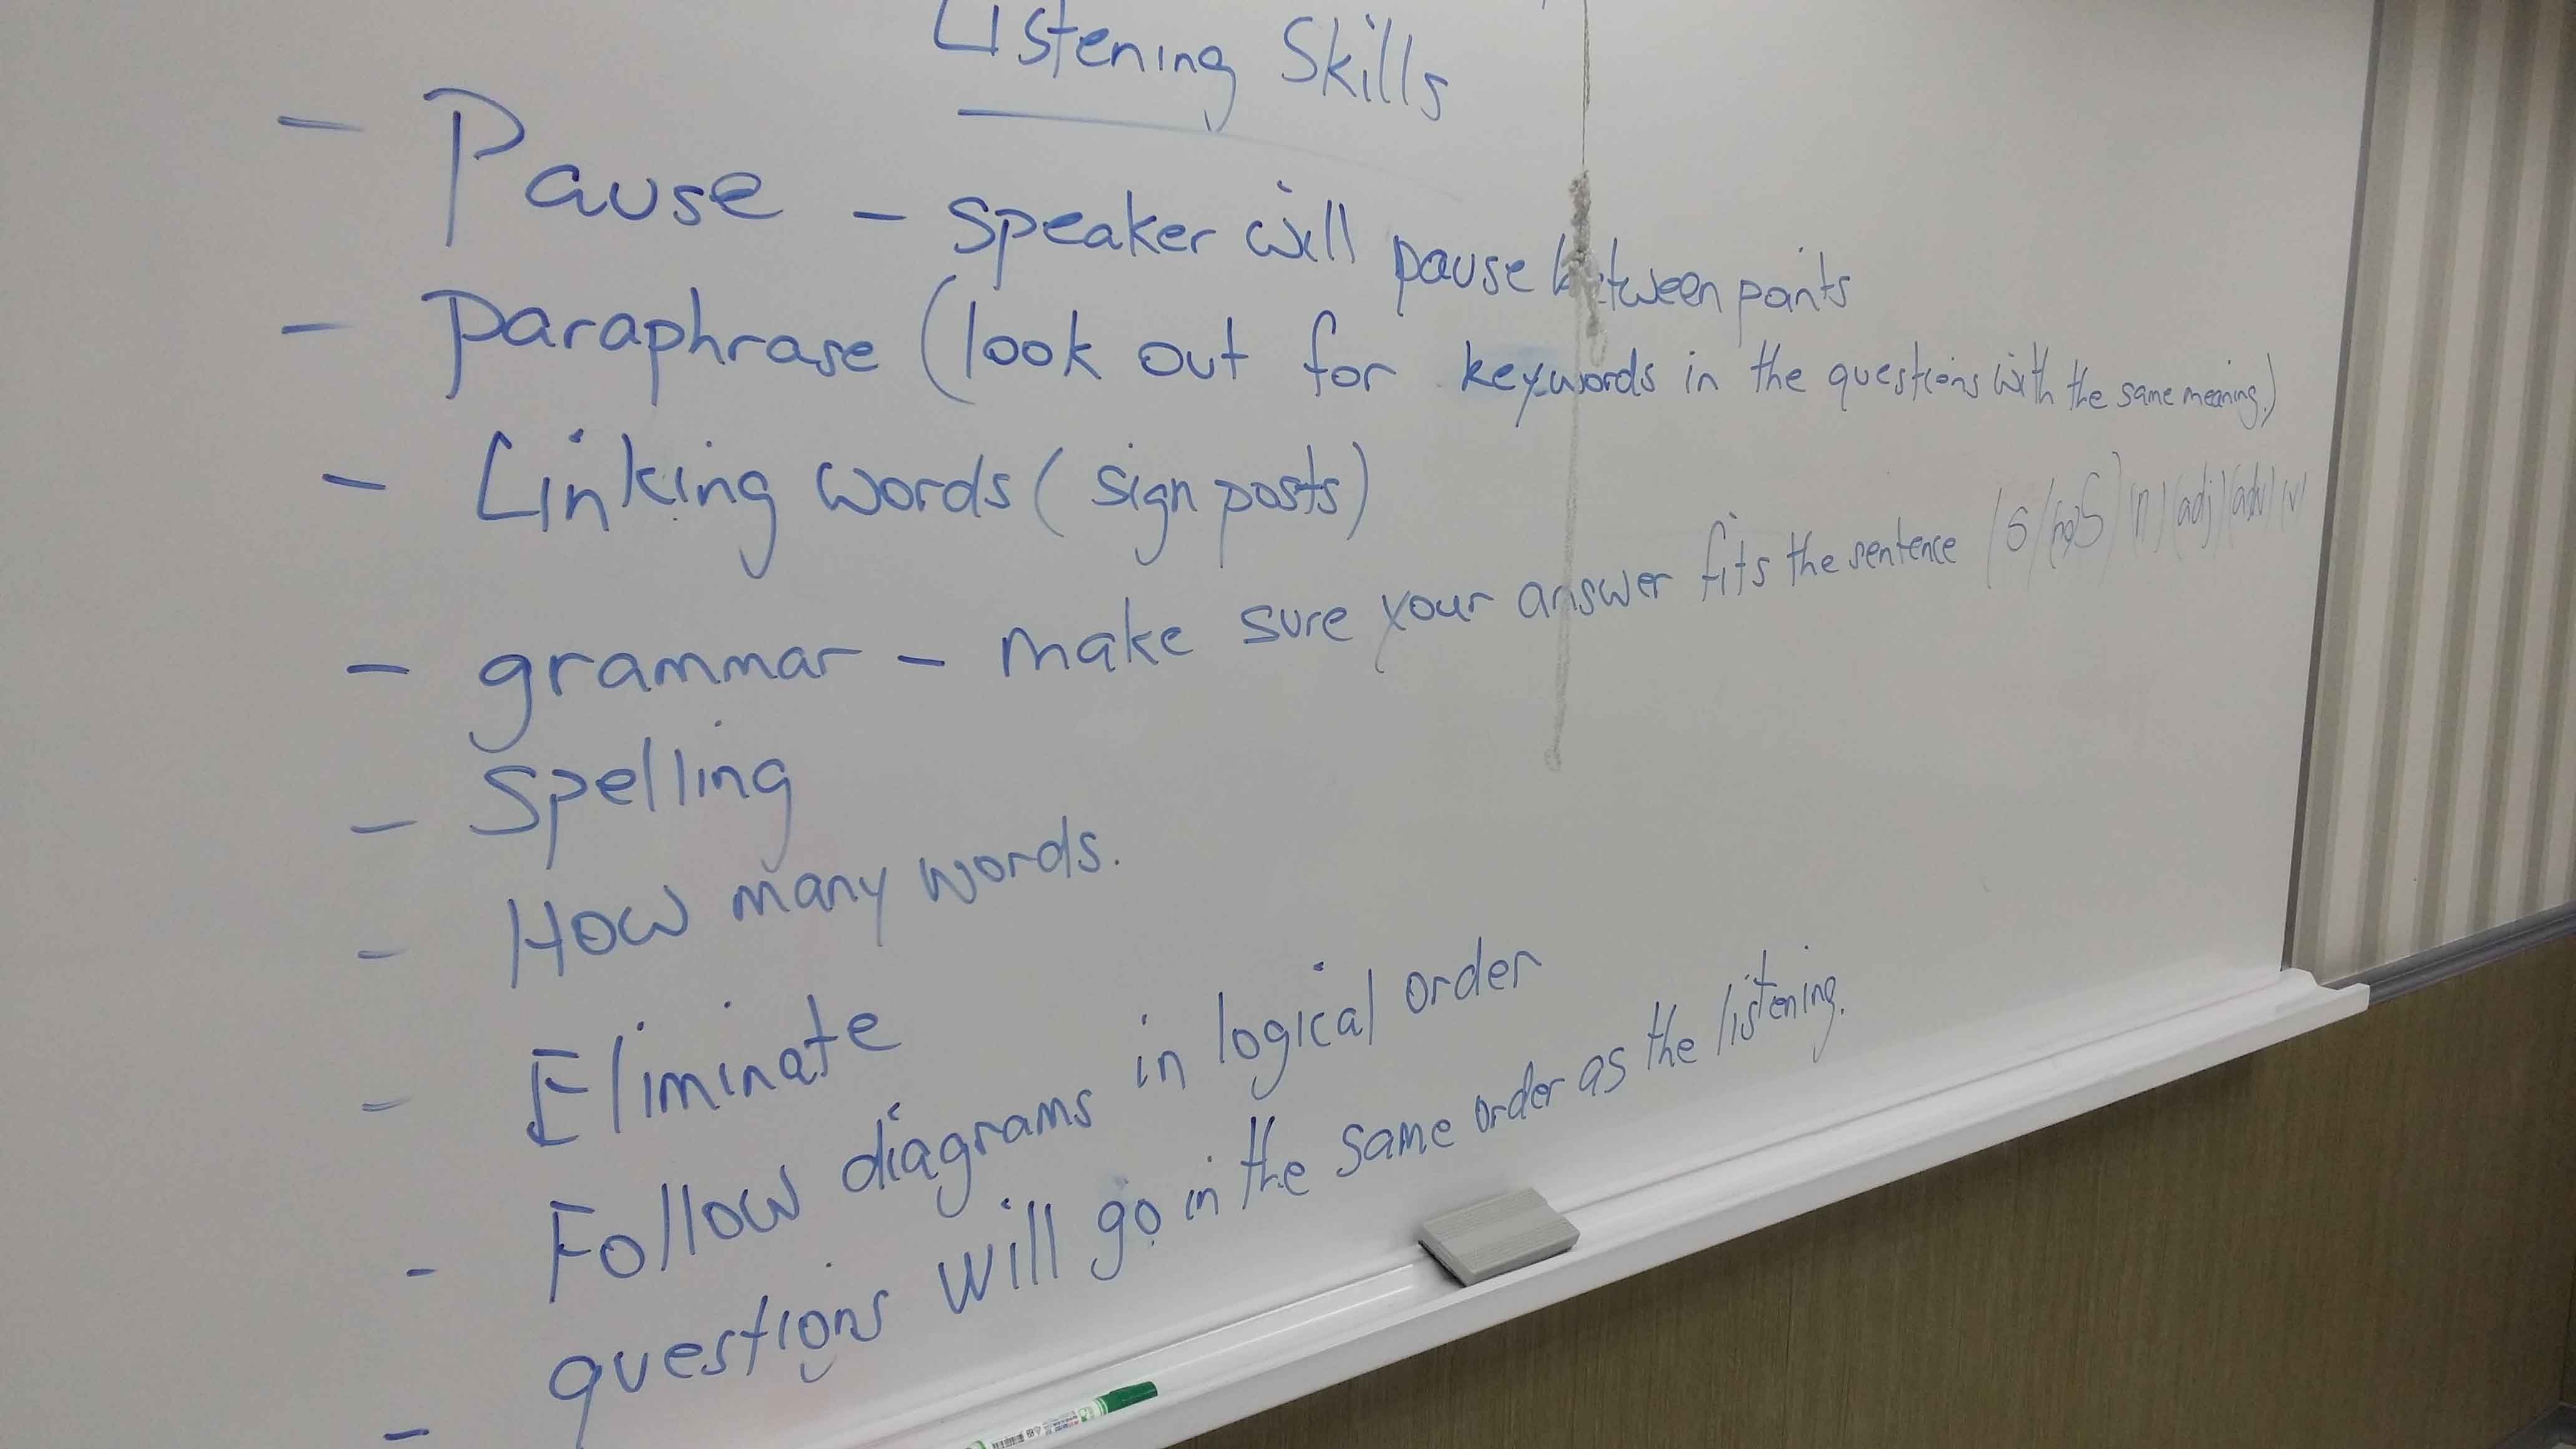 Listening Skills
- Pause - speaker will pause between points
- Paraphrase (look out for keywords in the questions with the same meaning.)
- Linking words (sign posts)
- grammar - make sure your answer fits the sentence (S/(no)S) (n) (adj) (adv) (v)
- Spelling
- How many words.
- Eliminate
- Follow diagrams in logical order
- questions will go in the same order as the listening.